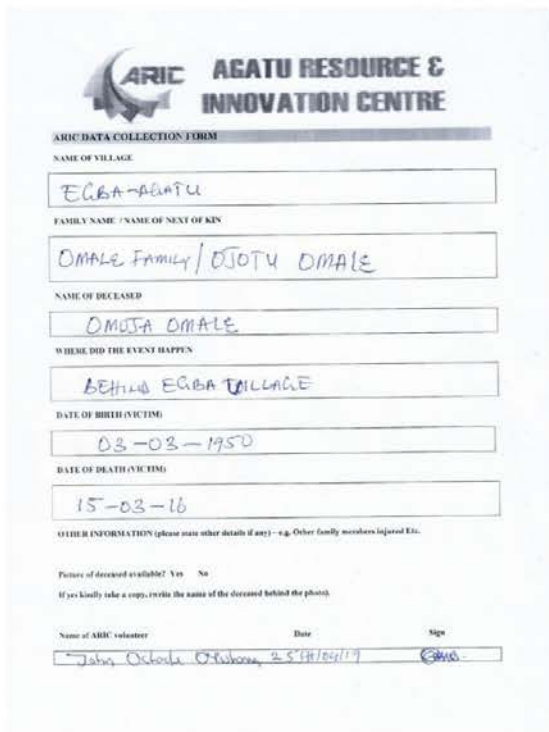 ARIC
AGATU RESOURCE &
INNOVATION CENTRE
ARIC DATA COLLECTION FORM
NAME OF VILLAGE
EGBA-AGATU
FAMILY NAME / NAME OF NEXT OF KIN
OMALE FAMILY / OJOTU OMALE
NAME OF DECEASED
OMUJA OMALE
WHERE DID THE EVENT HAPPEN
BEHIND EGBA VILLAGE
DATE OF BIRTH (VICTIM)
03-03-1950
DATE OF DEATH (VICTIM)
15-03-16
OTHER INFORMATION (please state other details if any) – e.g. Other family members injured Etc.
Picture of deceased available? Yes No
If yes kindly take a copy, (write the name of the deceased behind the photo).
Name of ARIC volunteer Date Sign
John 25th/04/19